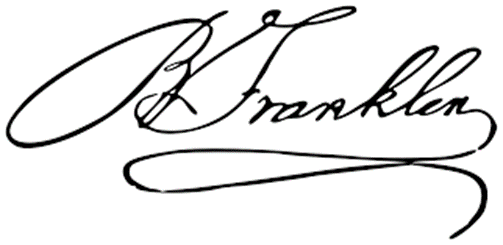 B Franklin